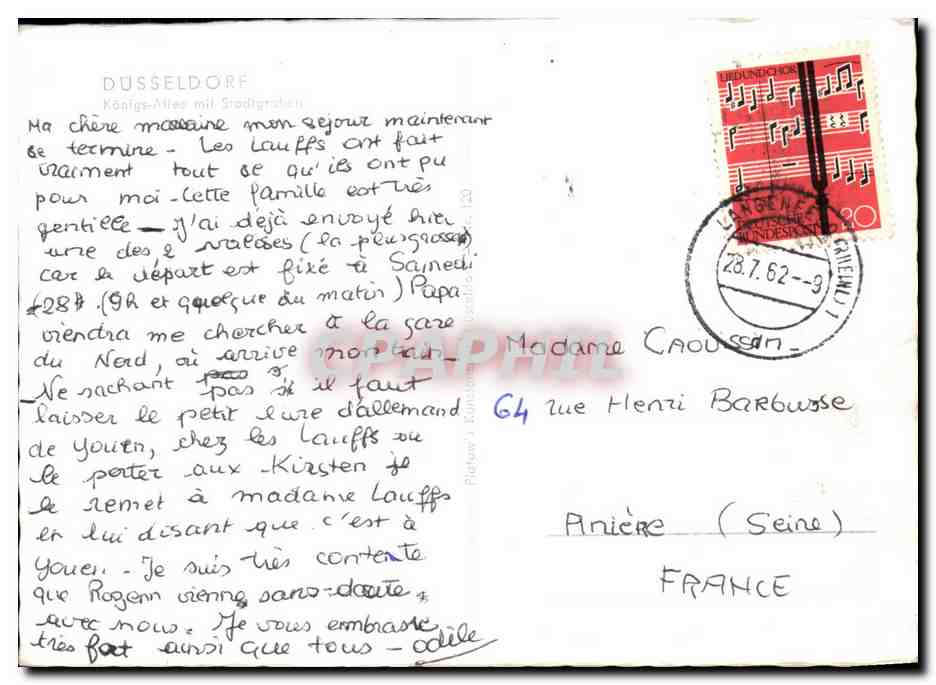 DÜSSELDORF
Königs-Allee mit Stadtgraben
Ma chère marraine mon séjour maintenant
se termine - Les Lauffs ont fait
vraiment tout ce qu'ils ont pu
pour moi - Cette famille est très
gentille - J'ai déjà envoyé hier
une des 2 valises (la plus grosse)
car le départ est fixé à Samedi
28. (9h et quelque du matin) Papa
viendra me chercher à la gare
du Nord, où arrive mon train -
- Ne sachant pas si il faut
laisser le petit livre d'allemand
de Youen, chez les Lauffs ou
le porter aux Kirsten je
le remet à madame Lauffs
en lui disant que c'est à
Youen - Je suis très contente
que Rozenn vienne sans-doute
avec nous. Je vous embrasse
très fort ainsi que tous - odèle
Platow's Kunst
120
LIED UND CHOR
DEUTSCHE
BUNDESPOST
20
LANGENFELD (RHEINL) 1
28.7.62--9
CPAPHIL
Madame Caoussin -
64 rue Henri Barbusse
Anière (Seine)
FRANCE